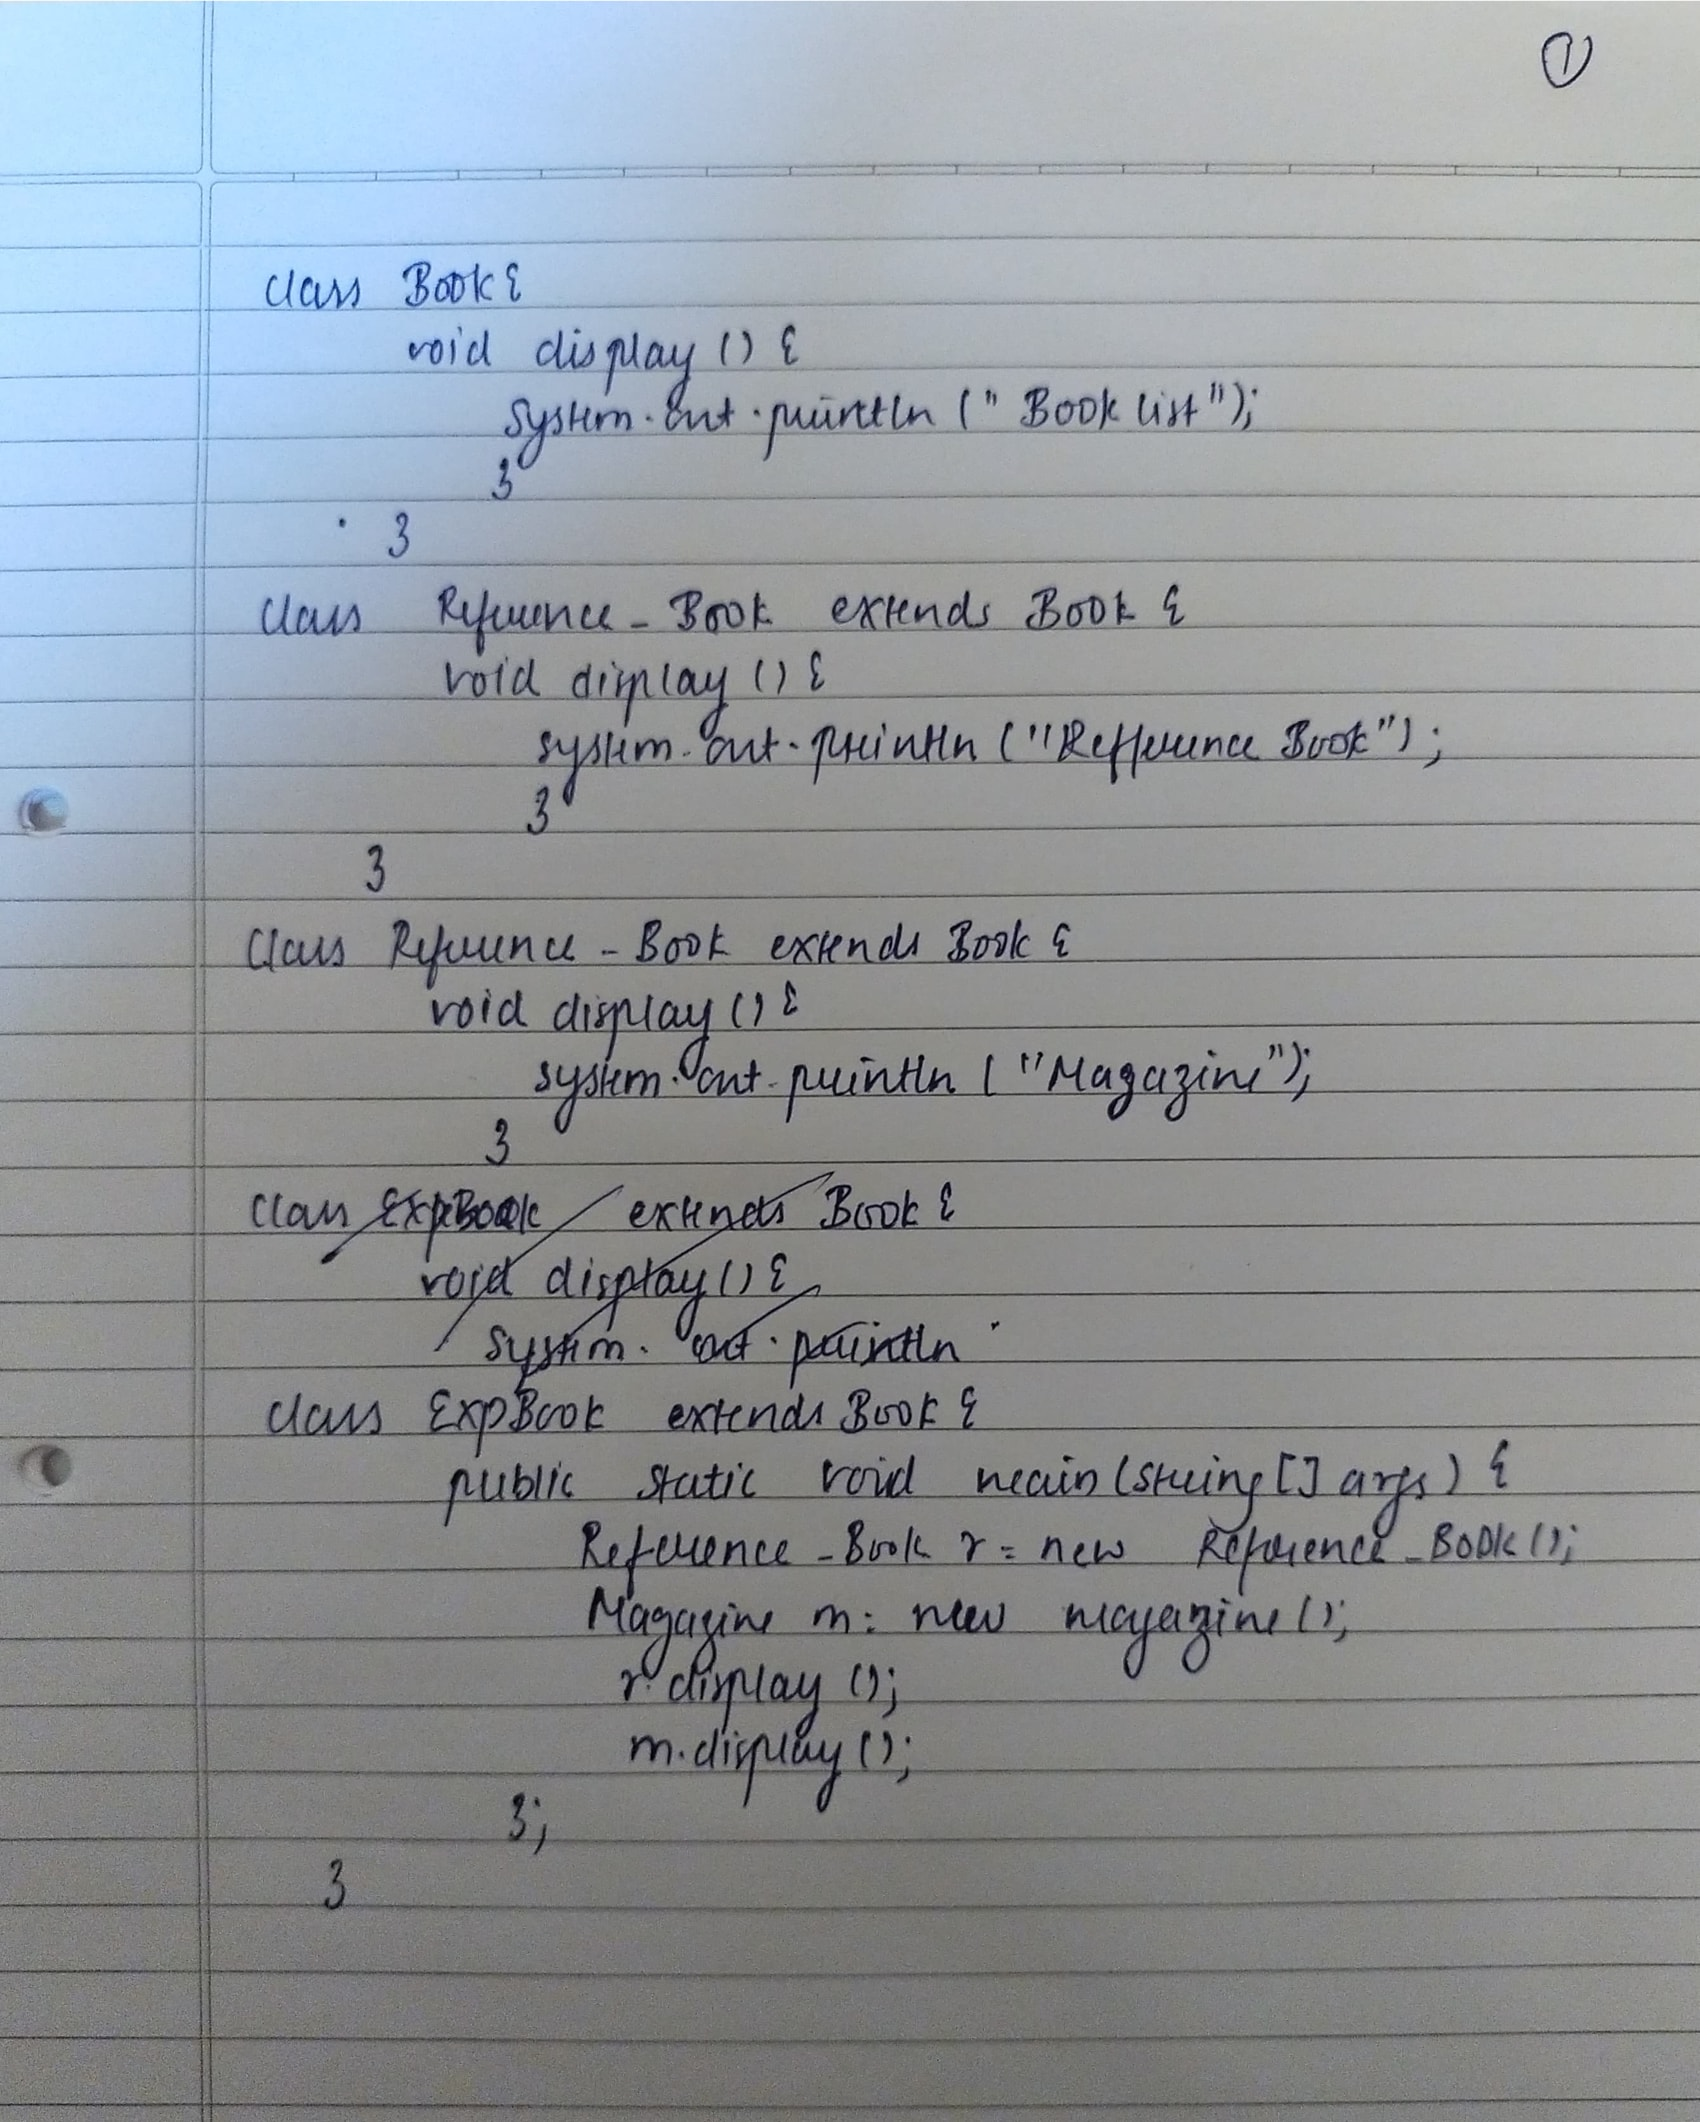 1
class Book{
void display () {
System.out.println (" Book list");
}
}
class Reference_Book extends Book {
void display () {
system.out.println ("Refference Book") ;
}
}
class Reference_Book extends Book {
void display () {
system.out.println ("Magazine");
}
class ExpBook extends Book {
void display () {
System.out.println
class ExpBook extends Book {
public static void main (String [] args) {
Reference_Book r = new Reference_Book ();
Magazine m = new magazine ();
r.display ();
m.display ();
};
}